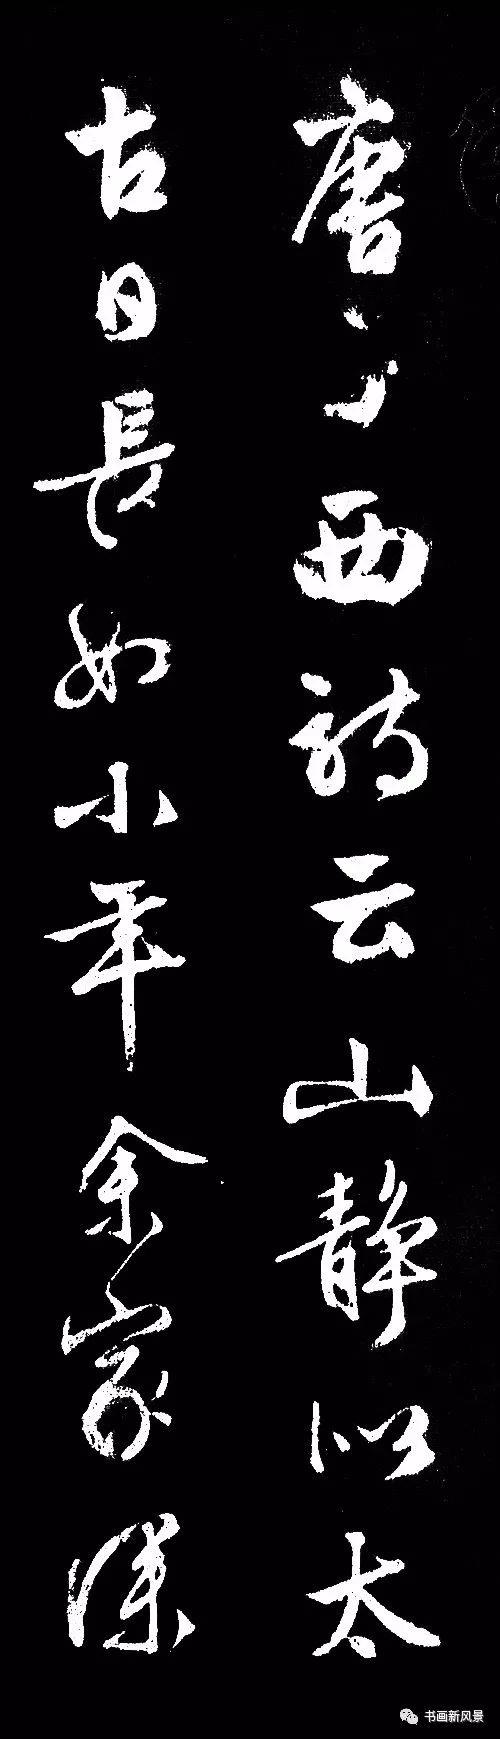 唐子西詩云山静似太
古日長如小年余家深
书画新风景